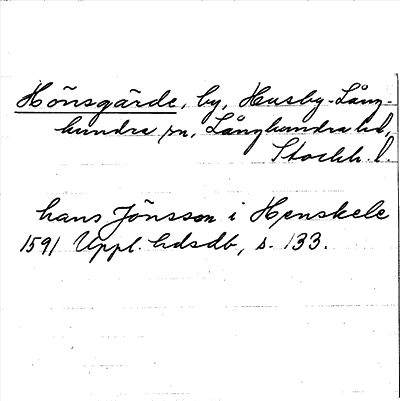 Hönsgärde, by, Husby-Lång-
hundra sn, Långhundra hd,
Stockh. l.
hans Jönsson i Henskele
1591 Uppl. hdsdb, s. 133.